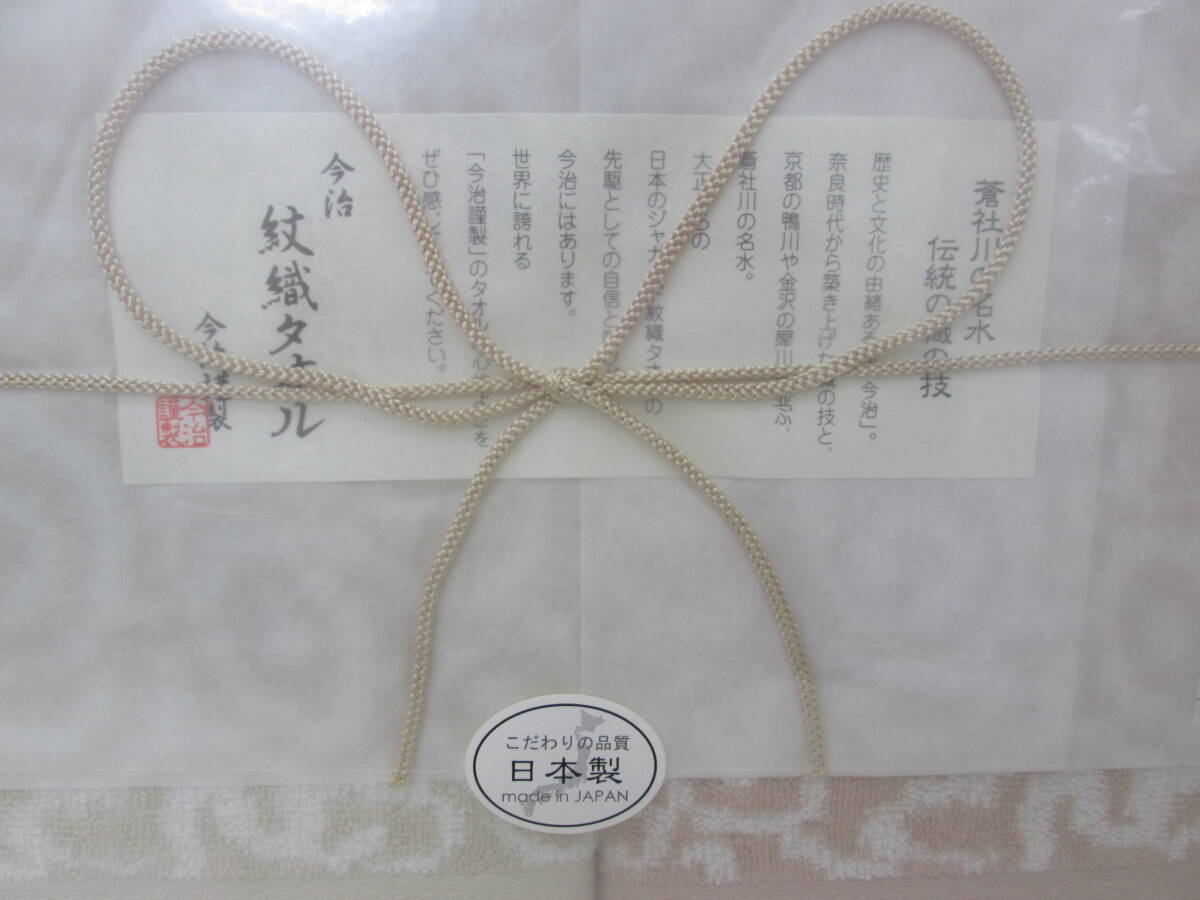 蒼社川の名水
伝統の織の技
歴史と文化の由緒ある 今治」。
奈良時代から築き上げた の技と、
京都の鴨川や金沢の犀川 並ぶ、
蒼社川の名水。
大正 らの
日本のジャカ 紋織タオ の
先駆としての自信と
今治にはあります。
世界に誇れる
「今治謹製」のタオル 心 を
ぜひ感 ください。
今治
紋織タオル
今治謹製
今治
謹製
こだわりの品質
日本製
made in JAPAN